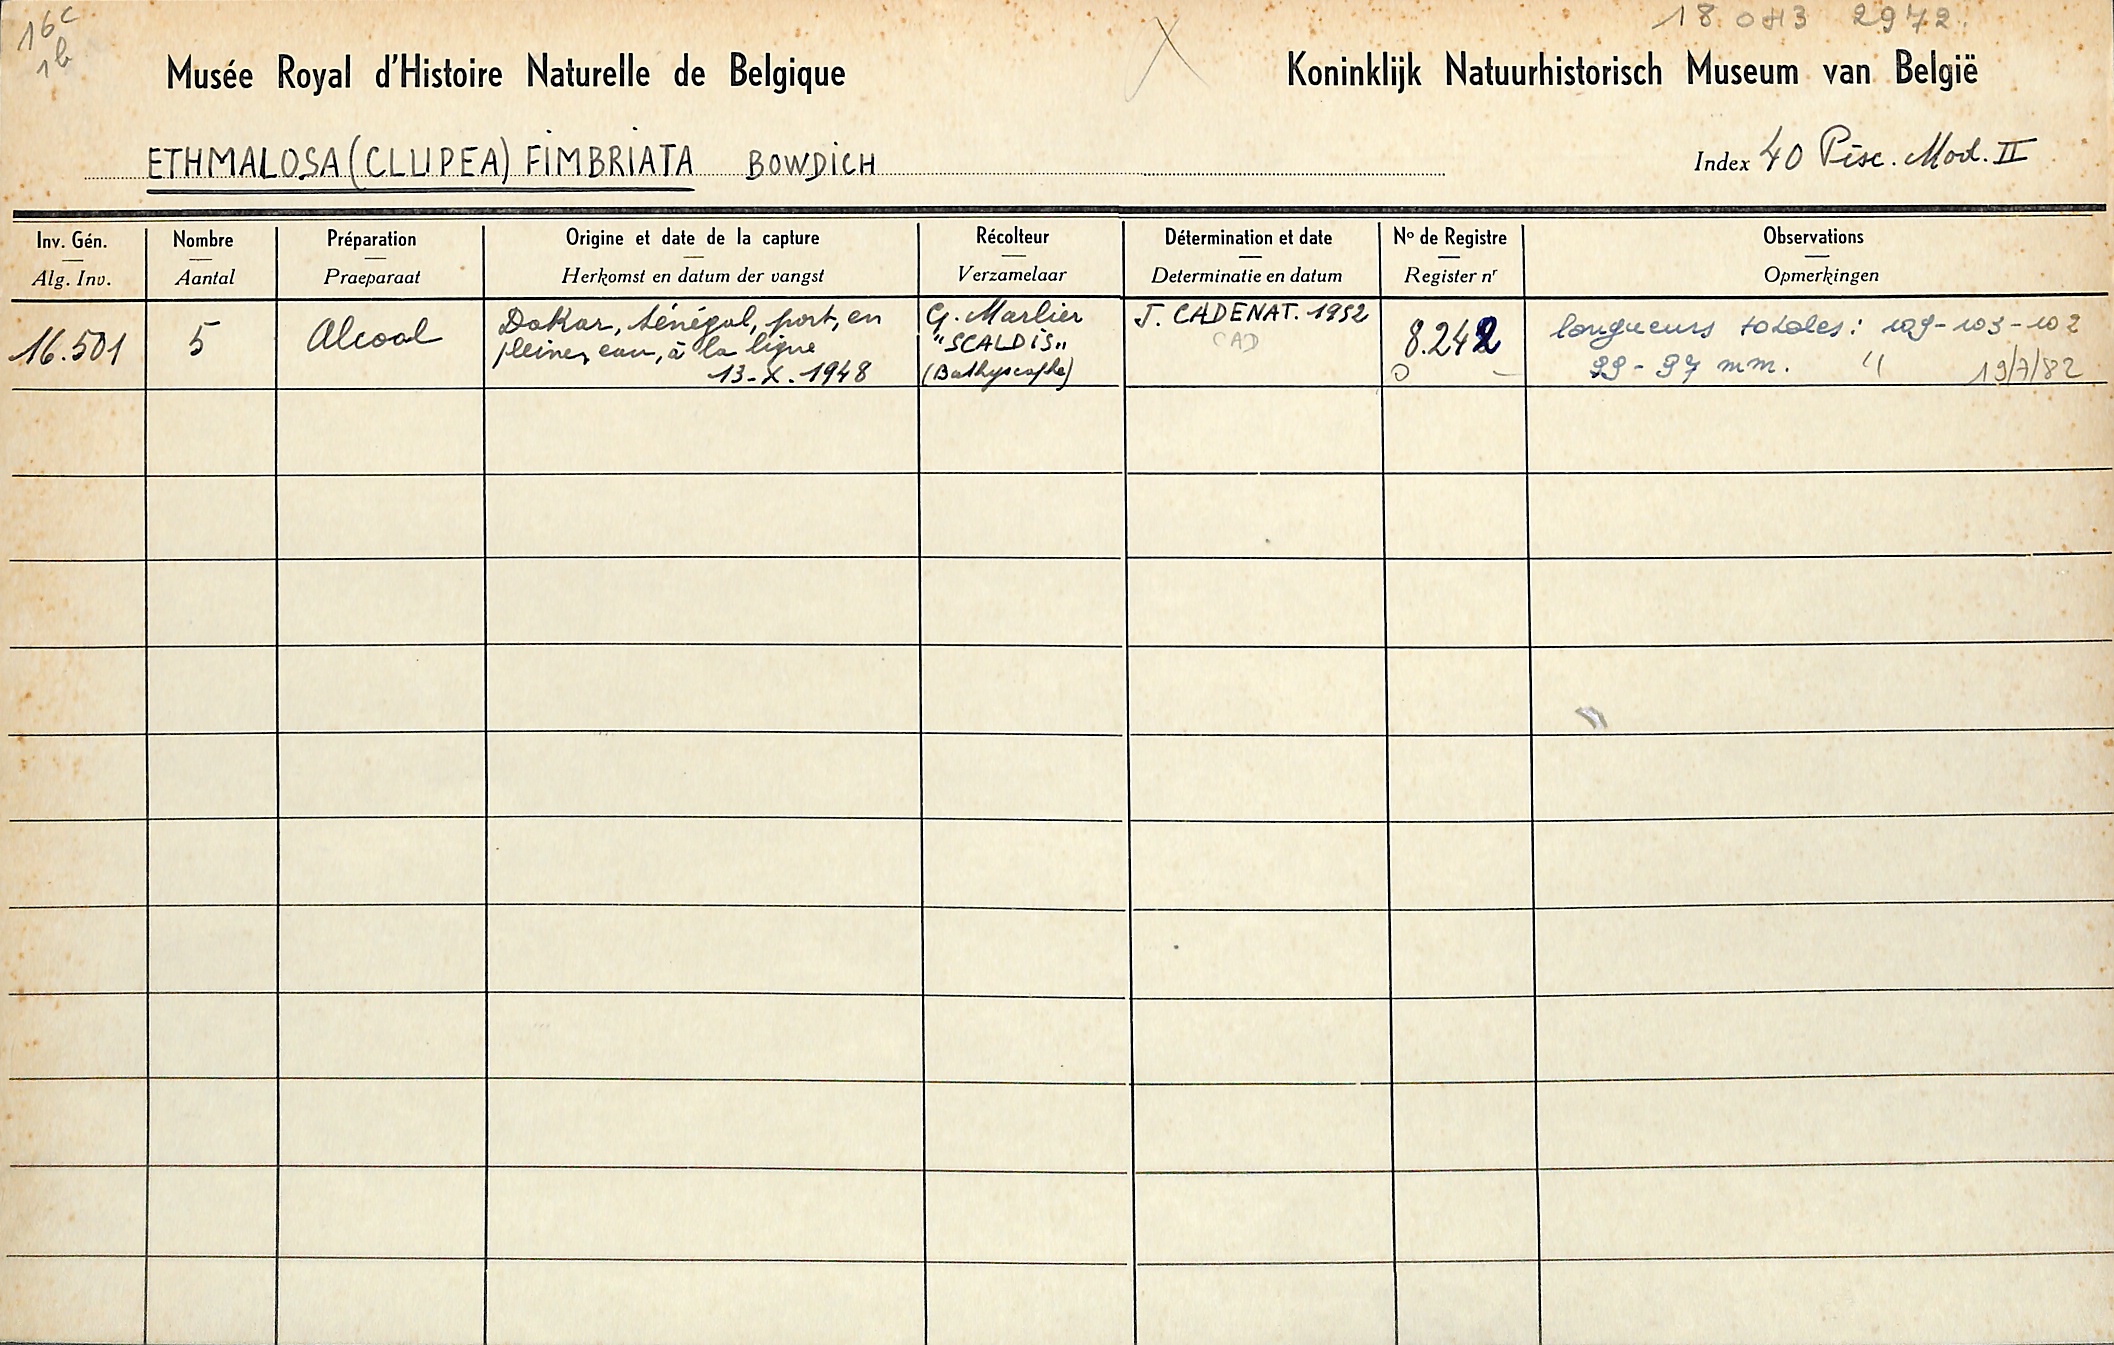 16c
1b
18 043 2972
Musée Royal d'Histoire Naturelle de Belgique
Koninklijk Natuurhistorisch Museum van België
ETHMALOSA (CLUPEA) FIMBRIATA BOWDICH
Index 40 Pisc. Mod. II
Inv. Gén. Nombre Préparation Origine et date de la capture Récolteur Détermination et date No de Registre Observations
Alg. Inv. Aantal Praeparaat Herkomst en datum der vangst Verzamelaar Determinatie en datum Register nr Opmerkingen
16.501 5 Alcool
Dakar, Sénégal, port, en
pleine eau, à la ligne
13-X-1948
G. Marlier
"SCALDIS"
(Bathyscaphe)
J. CADENAT. 1952
CAD
8.242
longueurs totales: 109-103-102
99-97 mm. " 19/7/82